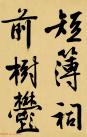 短簿祠
前樹鬱